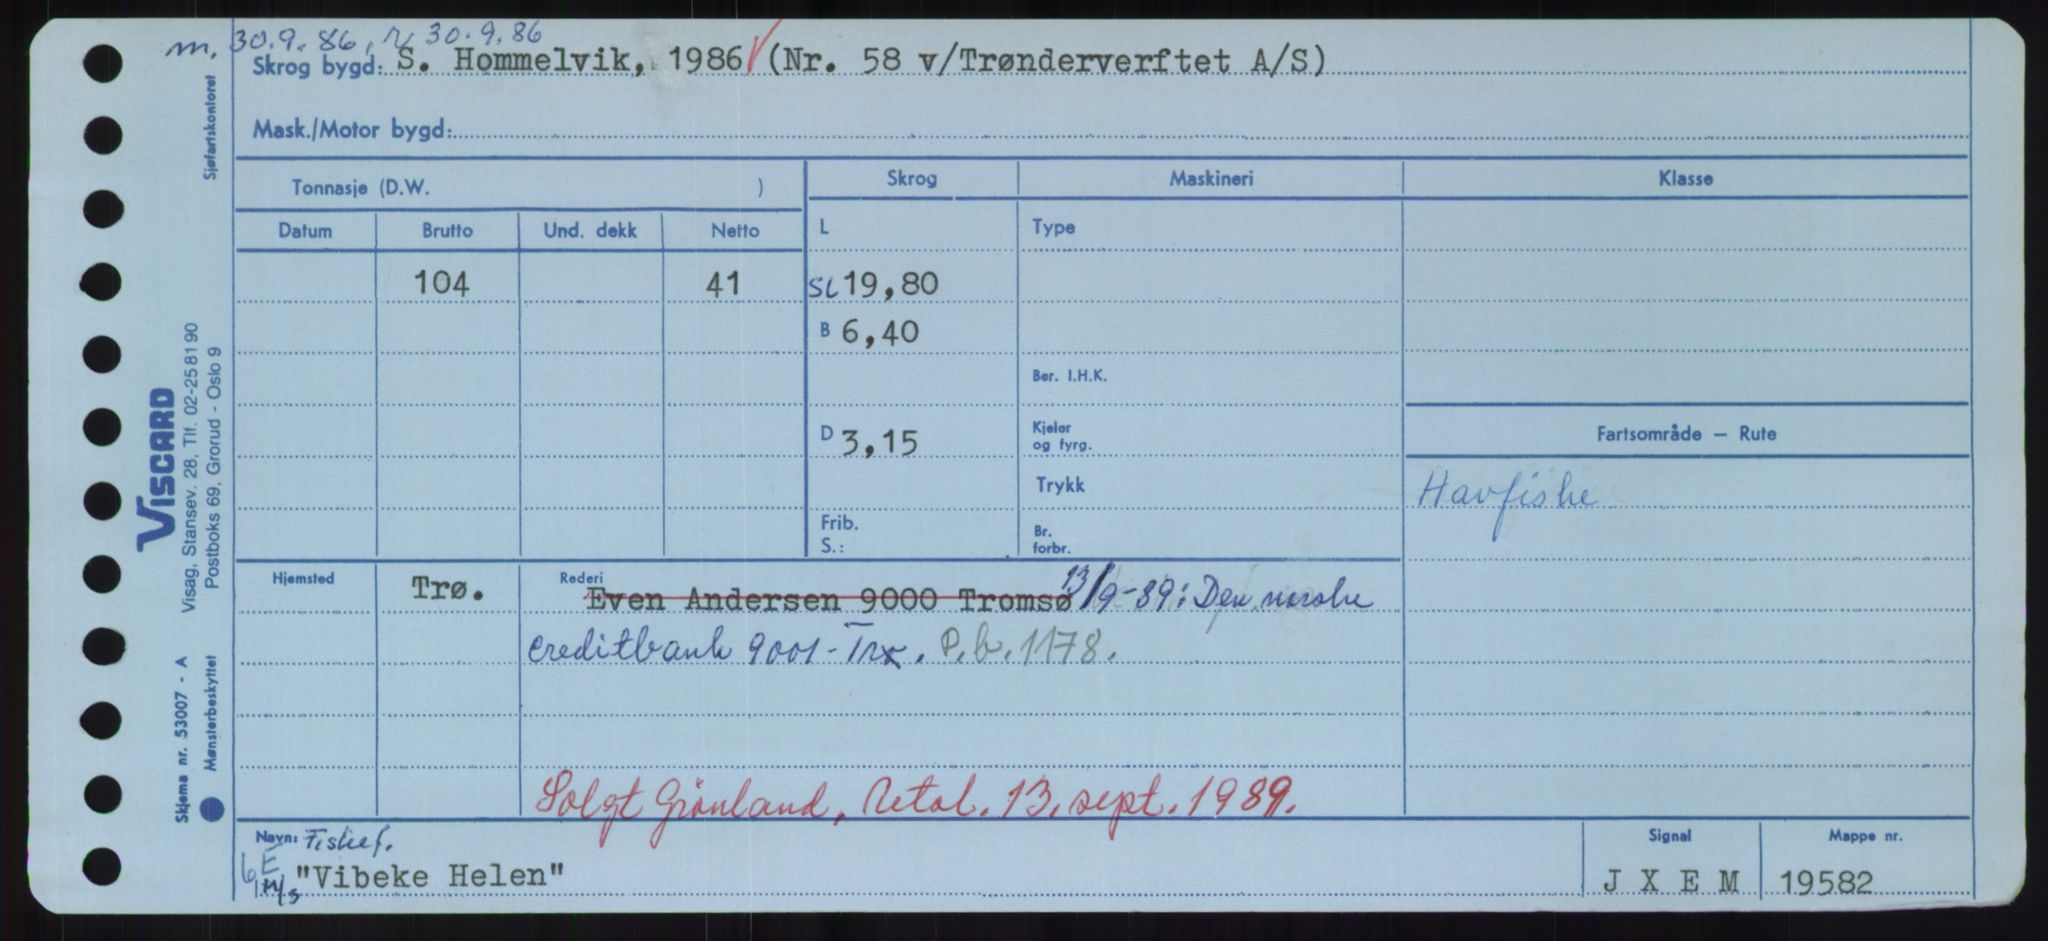 m, 30.9.86, r 30.9.86
Skrog bygd: S. Hommelvik, 1986 (Nr. 58 v/Trønderverftet A/S)
Mask./Motor bygd:
Tonnasje (D.W. )
Skrog
Maskineri
Klasse
Datum
Brutto
Und. dekk
Netto
L
Type
104
41
SL 19,80
B 6,40
Ber. I.H.K.
D 3,15
Kjeler
og fyrg.
Fartsområde – Rute
Trykk
Havfiske
Frib.
S.:
Br.
forbr.
Hjemsted
Trø.
Rederi
Even Andersen 9000 Tromsø 13/9-89: Den norske
creditbank 9001-Trø. P.b. 1178.
Solgt Grönland, Retol. 13. sept. 1989.
Navn: Fiskef.
M/S "Vibeke Helen"
Signal
J X E M
Mappe nr.
19582
Sjøfartskontoret
VISCARD
Visag, Stansev. 28, Tlf. 02-25 81 90
Postboks 69, Grorud - Oslo 9
Skjema nr. 53007 - A
Mønsterbeskyttet